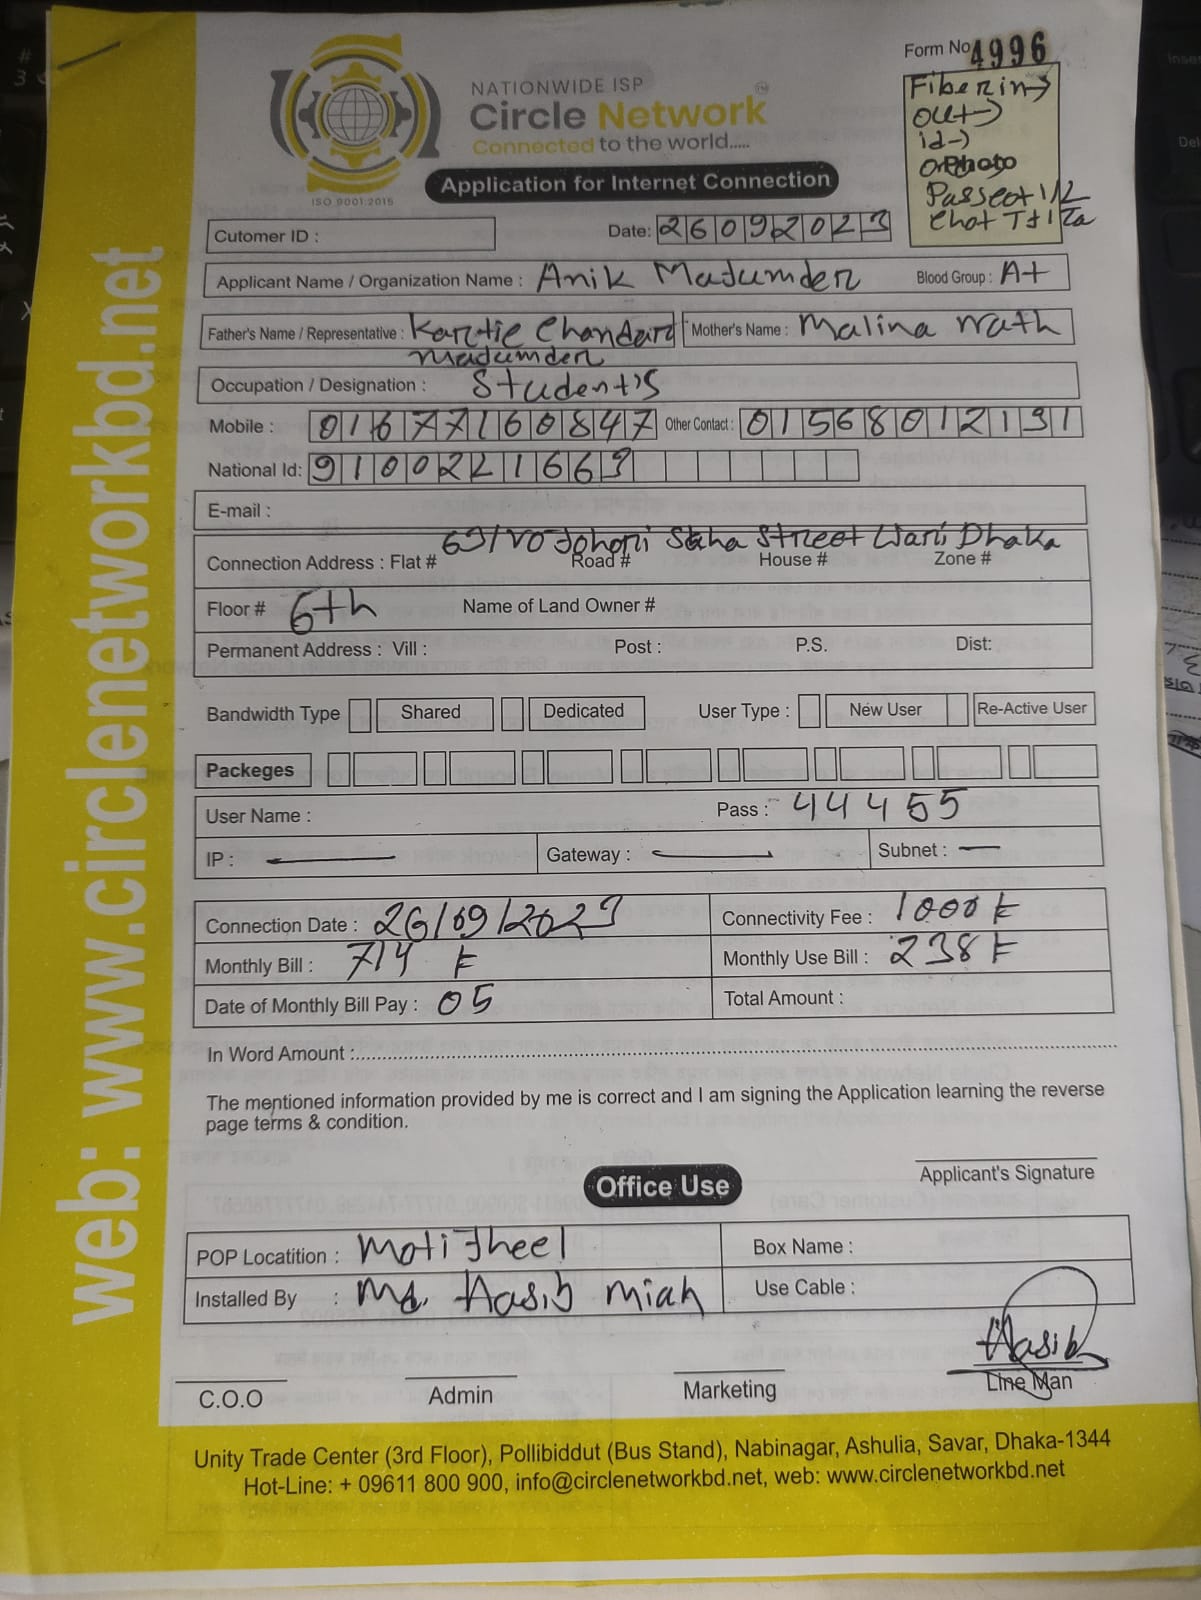 Form No 4996
Fiber in→
out→
id→
Photo
NATIONWIDE ISP
Circle Network
Connected to the world.....
ISO 9001:2015
Application for Internet Connection
Cutomer ID :
Date: 26092023
Applicant Name / Organization Name : Anik Majumder Blood Group : A+
Father's Name / Representative : Kartic Chandard Mother's Name : Malina nath
majumder
Occupation / Designation : Student's
Mobile : 01677160847 Other Contact : 01568012131
National Id: 9100221663
E-mail :
Saha Street Wari Dhaka
Connection Address : Flat # Road # House # Zone #
Floor # 6th Name of Land Owner #
Permanent Address : Vill : Post : P.S. Dist:
Bandwidth Type Shared Dedicated User Type : New User Re-Active User
Packeges
User Name : Pass : 44455
IP : Gateway : Subnet :
Connection Date : 26/09/2023 Connectivity Fee : 1000 ৳
Monthly Bill : 714 ৳ Monthly Use Bill : 238 ৳
Date of Monthly Bill Pay : 05 Total Amount :
In Word Amount :
The mentioned information provided by me is correct and I am signing the Application learning the reverse
page terms & condition.
Applicant's Signature
Office Use
POP Locatition : Motijheel Box Name :
Installed By : Md. Hasib Miah Use Cable :
Hasib
C.O.O Admin Marketing Line Man
Unity Trade Center (3rd Floor), Pollibiddut (Bus Stand), Nabinagar, Ashulia, Savar, Dhaka-1344
Hot-Line: + 09611 800 900, info@circlenetworkbd.net, web: www.circlenetworkbd.net
web: www.circlenetworkbd.net